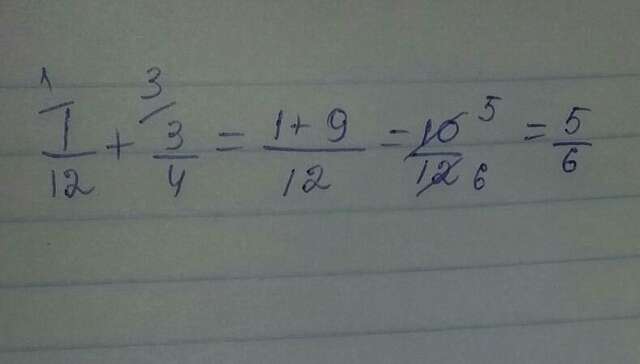 1/ 3/
1/12 + 3/4 = 1+9/12 = 10 5/12 6 = 5/6